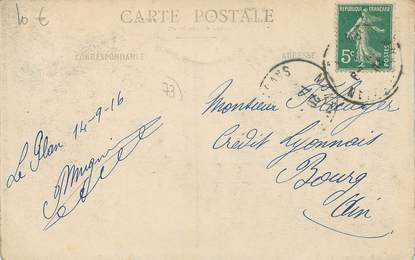 10 €
CARTE POSTALE
CORRESPONDANCE
ADRESSE
RÉPUBLIQUE FRANÇAISE
5c
POSTES
73
Le Plan 14-9-16
Monsieur
Crédit Lyonnais
Bourg
Ain